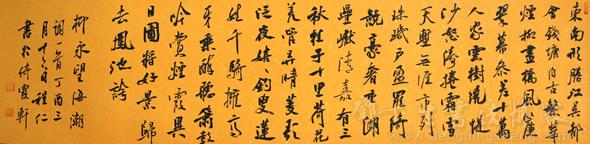 東南形勝江吳都
會錢塘自古繁華
煙柳畫橋風簾
翠幕參差十萬
人家雲樹繞堤
沙怒濤捲霜雪
天塹無涯市列
珠璣戶盈羅綺
競豪奢重湖
疊巘清嘉有三
秋桂子十里荷花
羌管弄晴菱歌
泛夜嬉嬉釣叟蓮
娃千騎擁高
牙乘醉聽簫鼓
吟賞煙霞異
日圖將好景歸
去鳳池誇
柳永望海潮
詞一首丁酉三
月十日程仁
書於霞軒